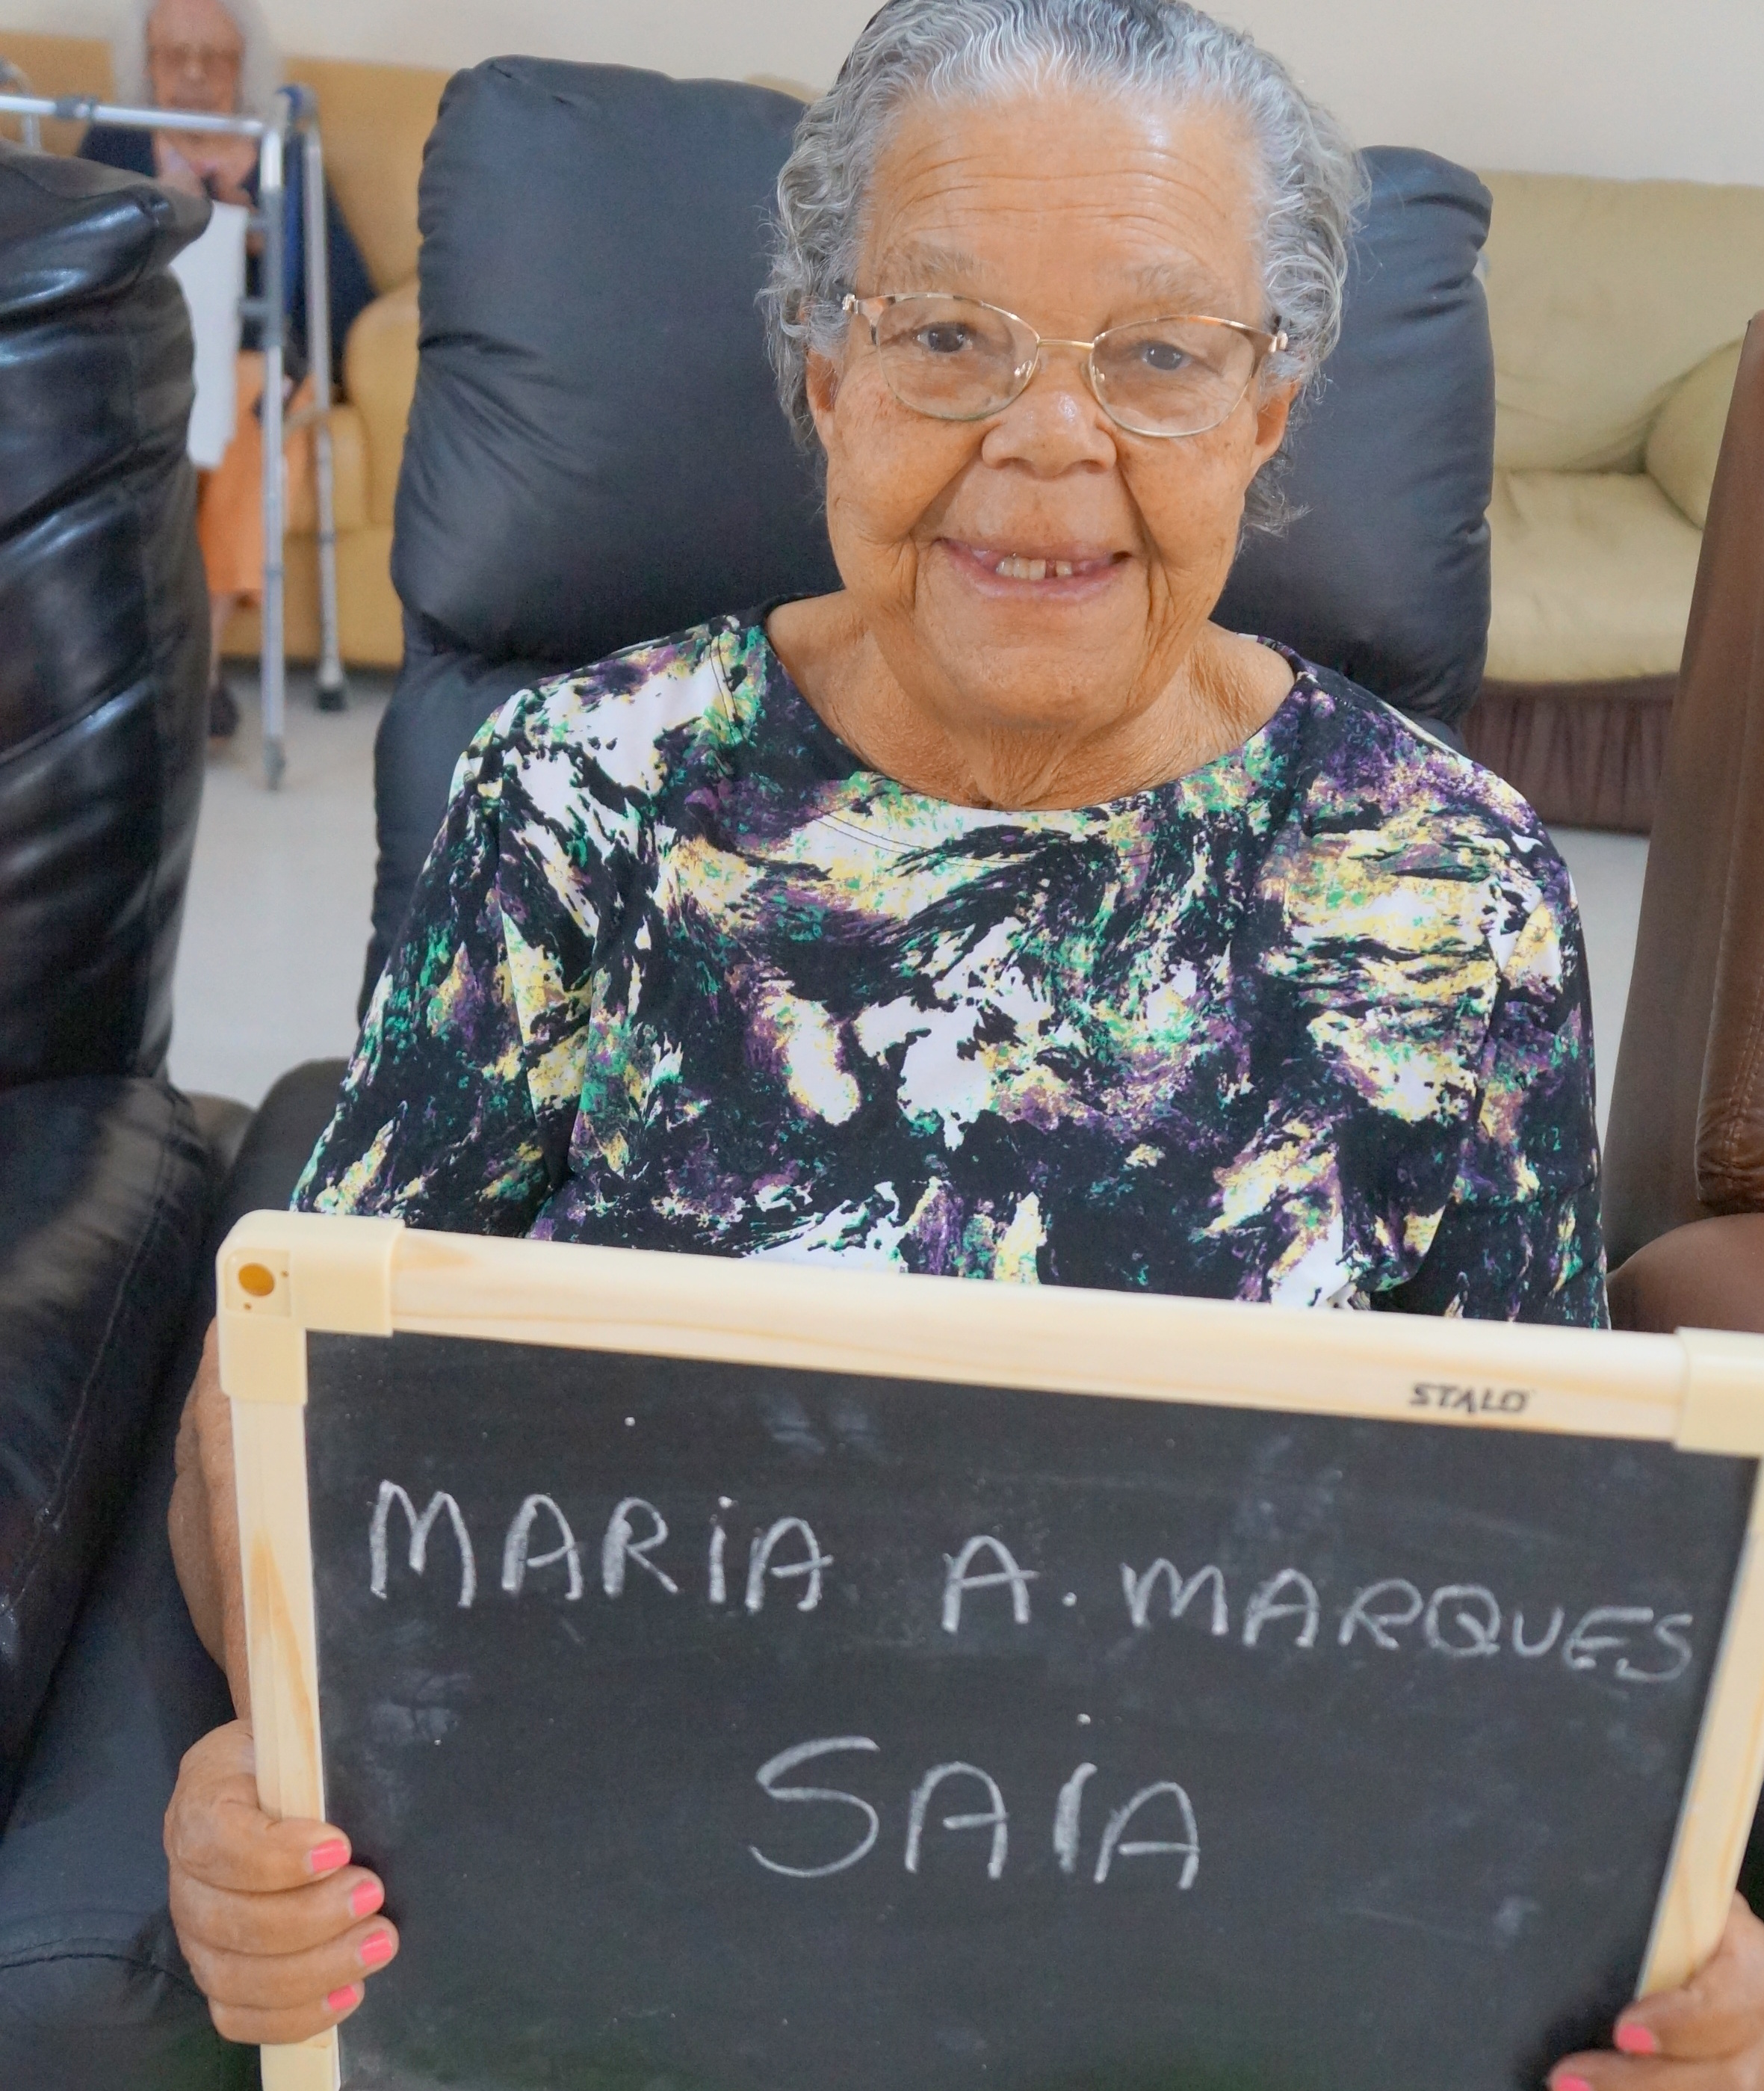 STALO
MARIA A. MARQUES
SAIA